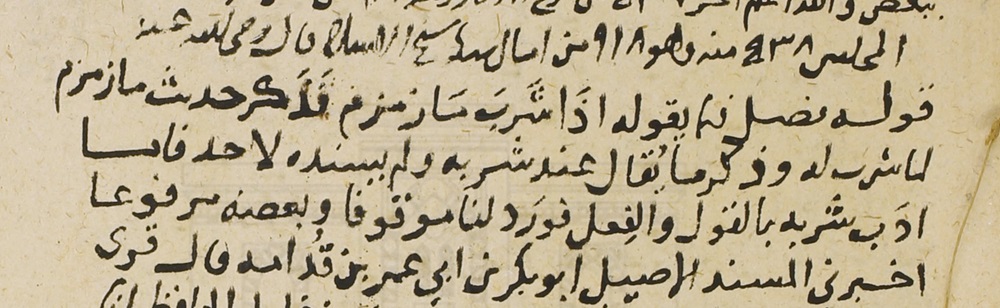 المجلس ٩٣٨ منه وهو ٩١٨ من امالي شيخ الاسلام قال رضي الله عنه
قوله فصل فيما يقوله اذا شرب ما زمزم فذكر حديث ما زمزم
لما شرب له وذكر ما يقال عند شربه ولم يسنده لاحد فاما
ادب شربه بالقول والفعل فورد لنا موقوفا وبعضه مرفوعا
اخبرني المسند الاصيل ابو بكر بن ابي عمر بن قدامه قال قرى